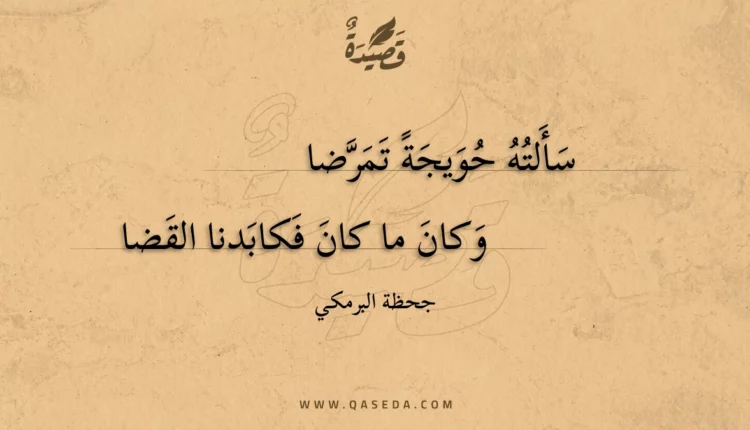 قَصِيْدَةٌ
سَأَلتُهُ حُوَيجَةً تَمَرَّضا
وَكانَ ما كانَ فَكابَدنا القَضا
جحظة البرمكي
WWW.QASEDA.COM